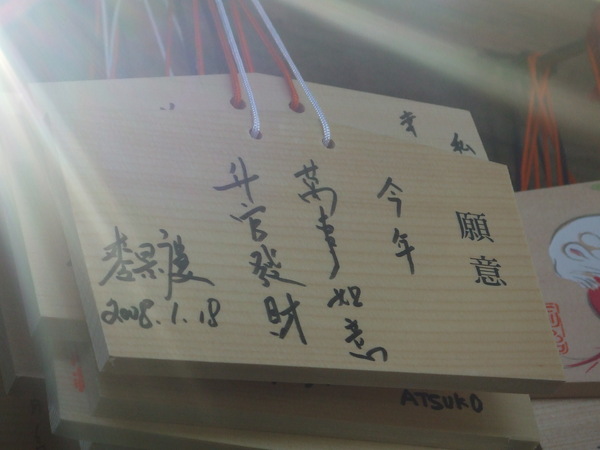 願意
今年
萬事如意
升官發財
2008.1.18
私
幸
ATSUKO